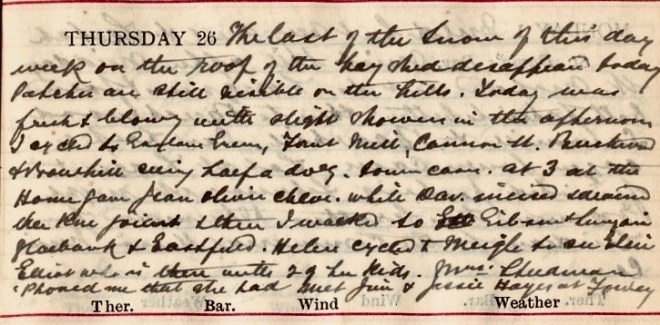 THURSDAY 26 The last of the snow of this day
week on the roof of the hay shed disappeard today
Patches are still visible on the hills. Today was
fresh & blowy with slight showers in the afternoon
I cycled to Eastern Green, Mill, Cannon St.
& Bowhill seing half a doz. town cases. at 3 at the
Home gave Jean Olivir Chlor. while Dav. incised & drained
the Knee joint & then I walked to Gibson &
& Eastfield. Helen cycled to Meigle to see Elsie
Elliot who is there with 2 of her kids. Mrs.
'Phoned me that she had met Jim & Jessie Hayes at
Ther. Bar. Wind Weather.